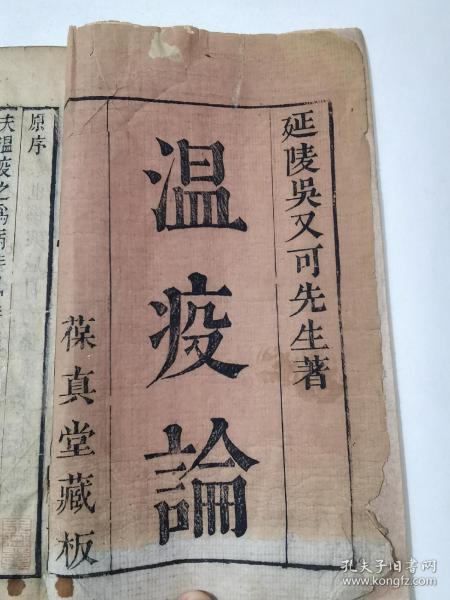 延陵吳又可先生著
温疫論
葆真堂藏板
原序
夫温疫之為病
孔夫子旧书网
www.kongfz.com